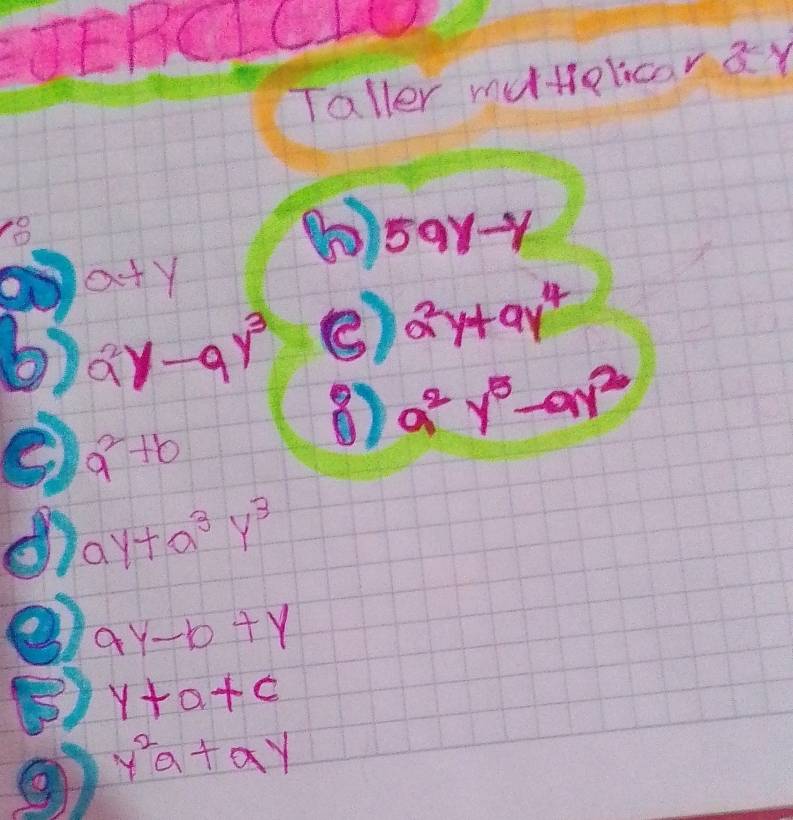 EJERCICIO
Taller multiplicar a²y
a) a+y
b) a²y-ay³
c) a²+b
d) ay+a³y³
e) ay-b+y
F) y+a+c
g) y²a+ay
h) 5ay-y
e) a²y+ay⁴
i) a²y⁵-ay²